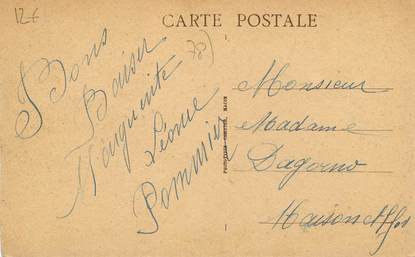 12€
CARTE POSTALE
Bons
Baiser
Marguerite
Léone
Pommier
Monsieur
Madame
Dagorno
Maison